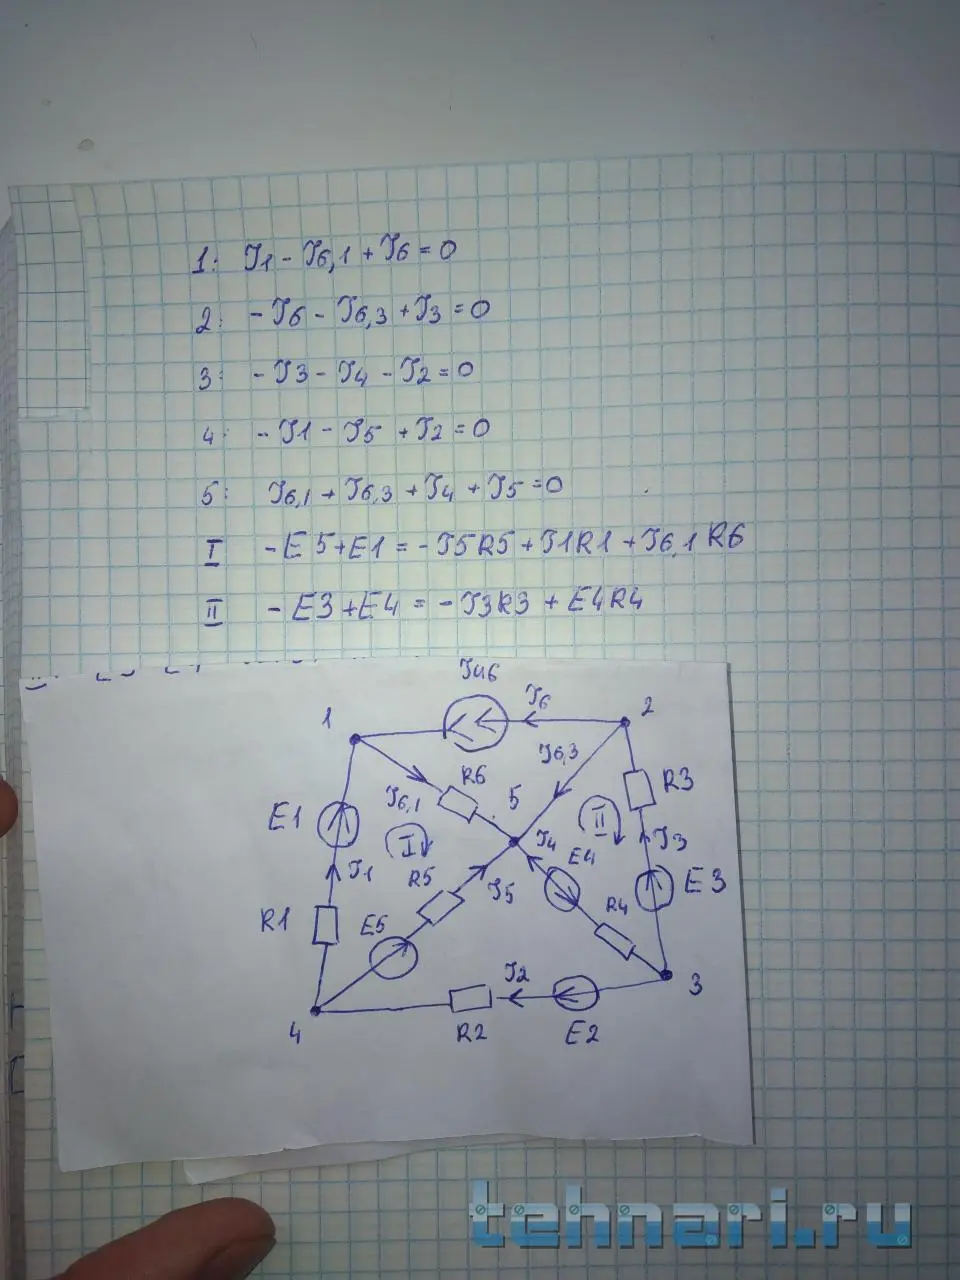 1: J1 - J6,1 + J6 = 0
2: - J6 - J6,3 + J3 = 0
3: - J3 - J4 - J2 = 0
4: - J1 - J5 + J2 = 0
5: J6,1 + J6,3 + J4 + J5 = 0
I - E5 + E1 = - J5R5 + J1R1 + J6,1R6
II - E3 + E4 = - J3R3 + E4R4
Jи6
1
J6
2
J6,3
R6
5
R3
E1
J6,1
I
II
J4
J3
J1
R5
E4
E3
J5
R1
E5
R4
J2
3
4
R2
E2
tehnari.ru